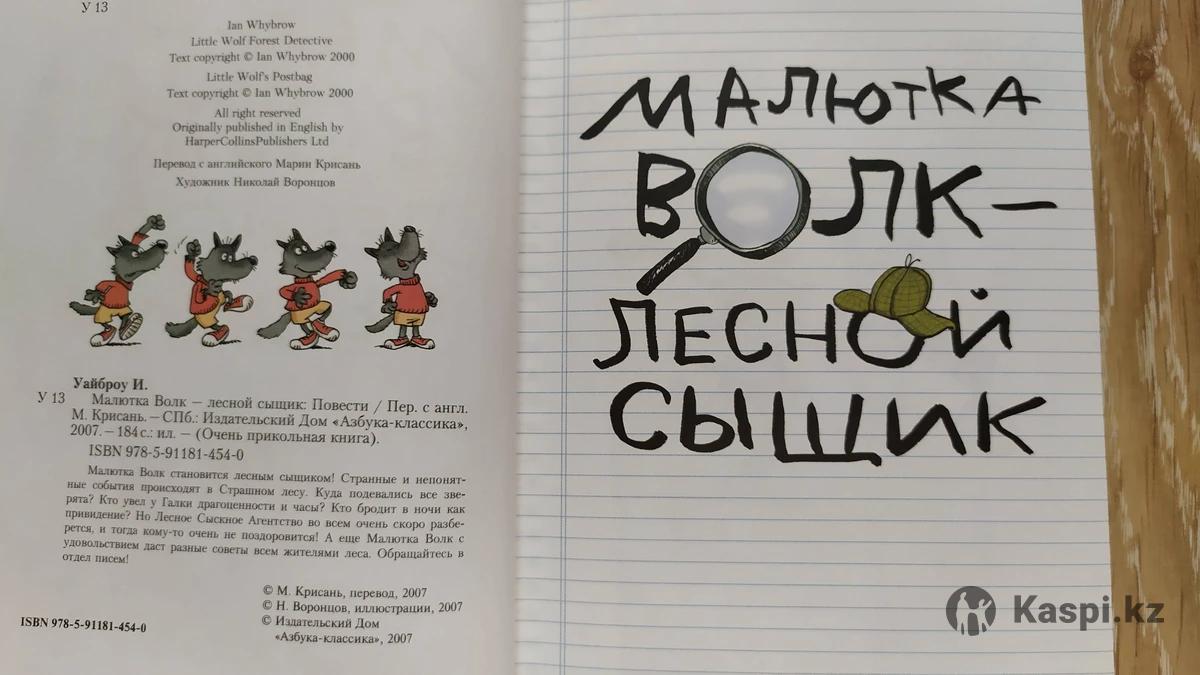 У 13
Ian Whybrow
Little Wolf Forest Detective
Text copyright © Ian Whybrow 2000
Little Wolf's Postbag
Text copyright © Ian Whybrow 2000
All right reserved
Originally published in English by
HarperCollinsPublishers Ltd
Перевод с английского Марии Крисань
Художник Николай Воронцов
Уайброу И.
У 13 Малютка Волк — лесной сыщик: Повести / Пер. с англ.
М. Крисань. — СПб.: Издательский Дом «Азбука-классика»,
2007. — 184 с.: ил. — (Очень прикольная книга).
ISBN 978-5-91181-454-0
Малютка Волк становится лесным сыщиком! Странные и непонят-
ные события происходят в Страшном лесу. Куда подевались все зве-
рята? Кто увел у Галки драгоценности и часы? Кто бродит в ночи как
привидение? Но Лесное Сыскное Агентство во всем очень скоро разбе-
рется, и тогда кому-то очень не поздоровится! А еще Малютка Волк с
удовольствием даст разные советы всем жителями леса. Обращайтесь в
отдел писем!
© М. Крисань, перевод, 2007
© Н. Воронцов, иллюстрации, 2007
© Издательский Дом
«Азбука-классика», 2007
ISBN 978-5-91181-454-0
МАЛЮТКА
ВОЛК —
ЛЕСНОЙ
СЫЩИК
Kaspi.kz